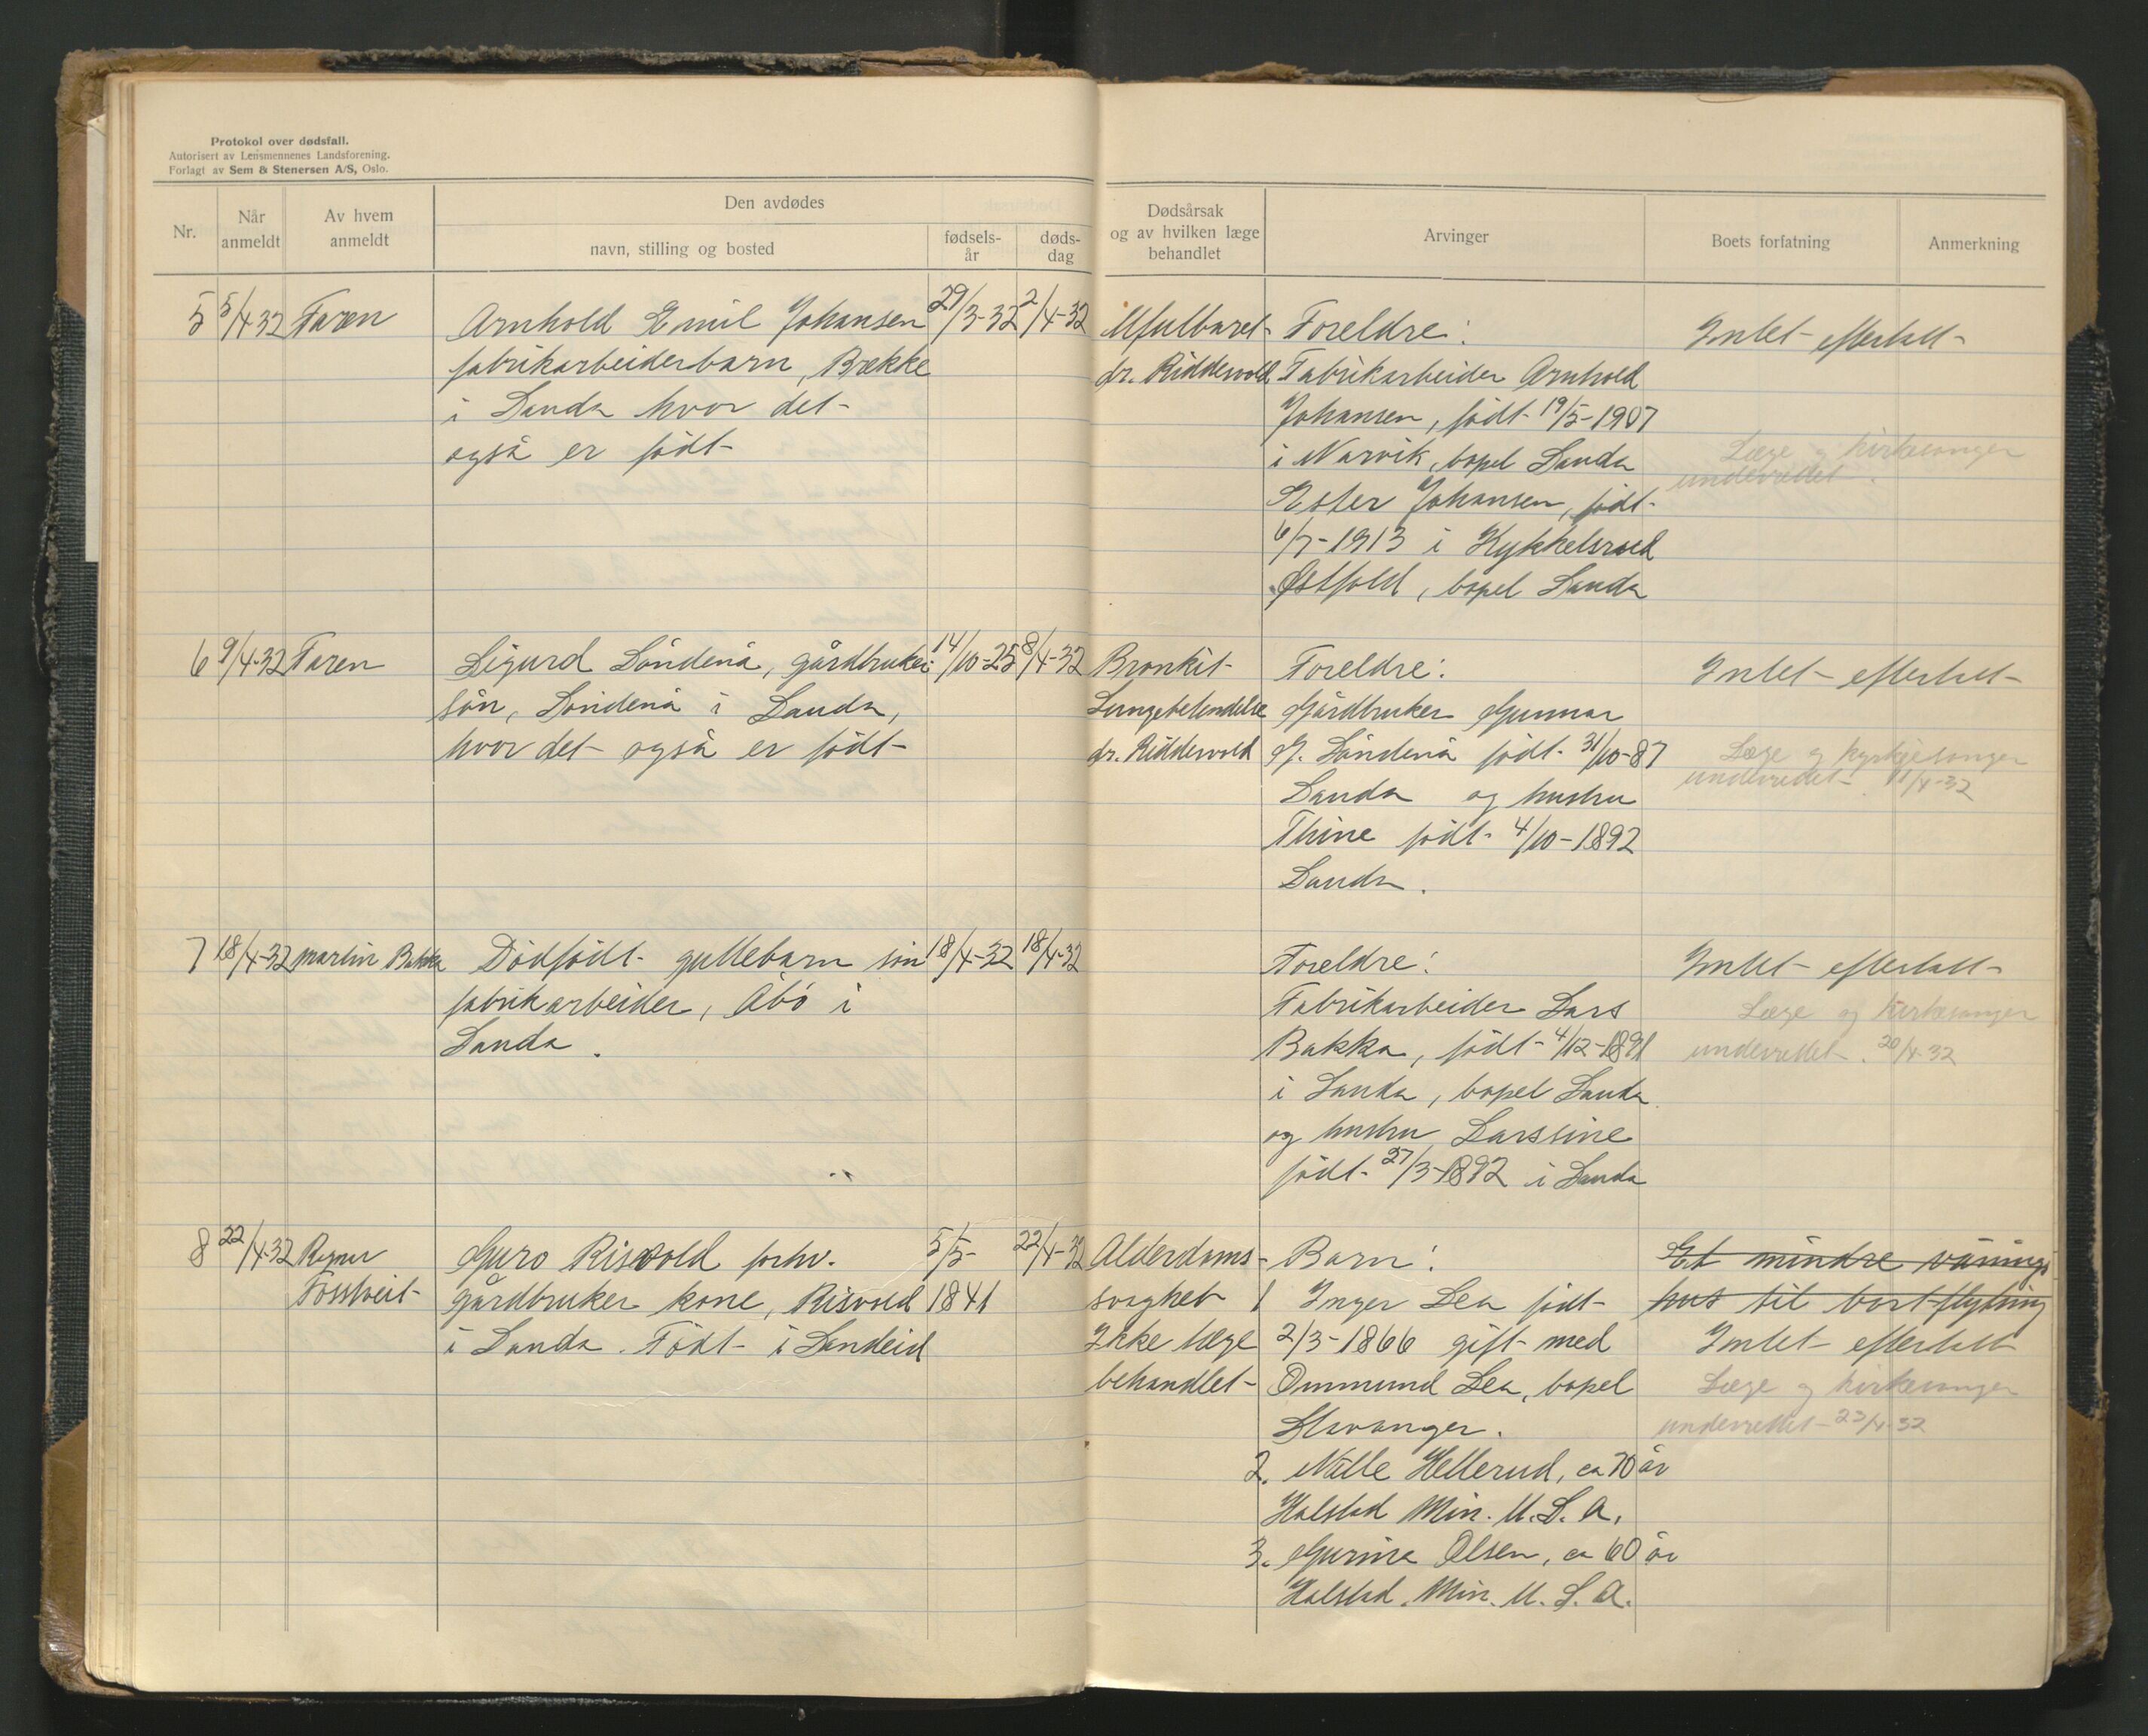 Protokol over dødsfall.
Autorisert av Lensmennenes Landsforening.
Forlagt av Sem & Stenersen A/S, Oslo.
Nr.
Når anmeldt
Av hvem anmeldt
Den avdødes
navn, stilling og bosted
fødsels-år
døds-dag
Dødsårsak og av hvilken læge behandlet
Arvinger
Boets forfatning
Anmerkning
5 5/4-32 Faren
Arnhold Emil Johansen 29/3-32 2/4-32
fabrikarbeiderbarn, Bække
i Sauda hvor det
også er födt
Ufulbaret
dr. Riddervold
Foreldre:
Fabrikarbeider Arnhold
Johansen, födt 19/5-1907
i Narvik, bopel Sauda
Ester Johansen, födt
6/7-1913 i Kykkelsrud
Østfold, bopel Sauda
Intet efterlatt
Læge og kirkesanger
underrettet.
6 9/4-32 Faren
Sigurd Söndenå, gårdbruker 14/10-25 8/4-32
sön, Söndenå i Sauda,
hvor det også er födt
Bronkit
Lungebetendelse
dr. Riddervold
Foreldre:
Gårdbruker Gunnar
G. Söndenå födt 31/10-87
Sauda og hustru
Thine födt 4/10-1892
Sauda.
Intet efterlatt
Læge og kyrkjesanger
underrettet 11/4-32
7 18/4-32 Martin Bakka
Dödfödt guttebarn sön 18/4-32 18/4-32
fabrikarbeider, Åbö i
Sauda.
Foreldre:
Fabrikarbeider Lars
Bakka, födt 4/12-1891
i Sauda, bopel Sauda
og hustru Larssine
födt 27/3-1892 i Sauda
Intet efterlatt
Læge og kirkesanger
underrettet. 20/4-32
8 22/4-32 Regner
Fosstveit
Guro Risvold forhv. 5/5- 22/4-32
gårdbruker kone, Risvold 1841
i Sauda. Födt i Sandeid
Alderdoms-
svaghet
Ikke læge
behandlet
Barn:
1 Inger Lea födt
2/3-1866 gift med
Ommund Lea, bopel
Stavanger.
2. Nille Hellerud, ca 70 år
Halstad Min. U.S.A.
3. Gurina Olsen, ca 60 år
Halstad. Min. U.S.A.
Et mindre vånings
hus til bortflytning
Intet efterlatt
Læge og kirkesanger
underrettet 23/4-32